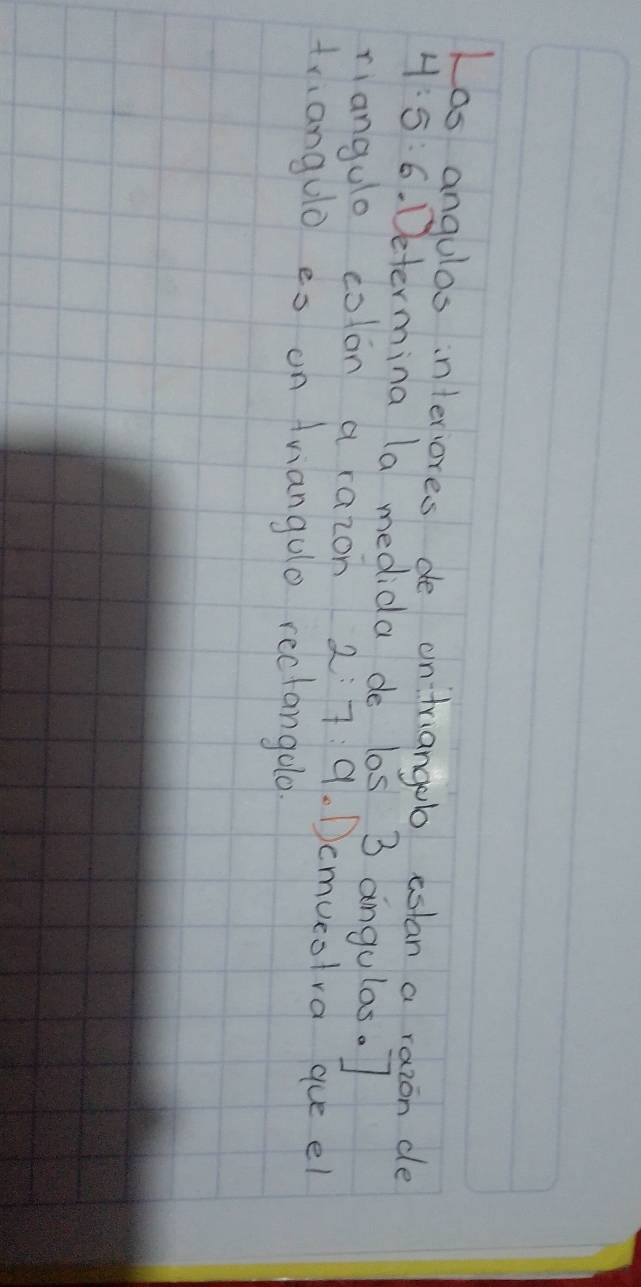 Los angulos interiores de un triangulo estan a razón de
4:5:6. Determina la medida de los 3 ángulos.]
riangulo están a razón 2:7:9. Demuestra que el
triangulo es un triangulo rectangulo.